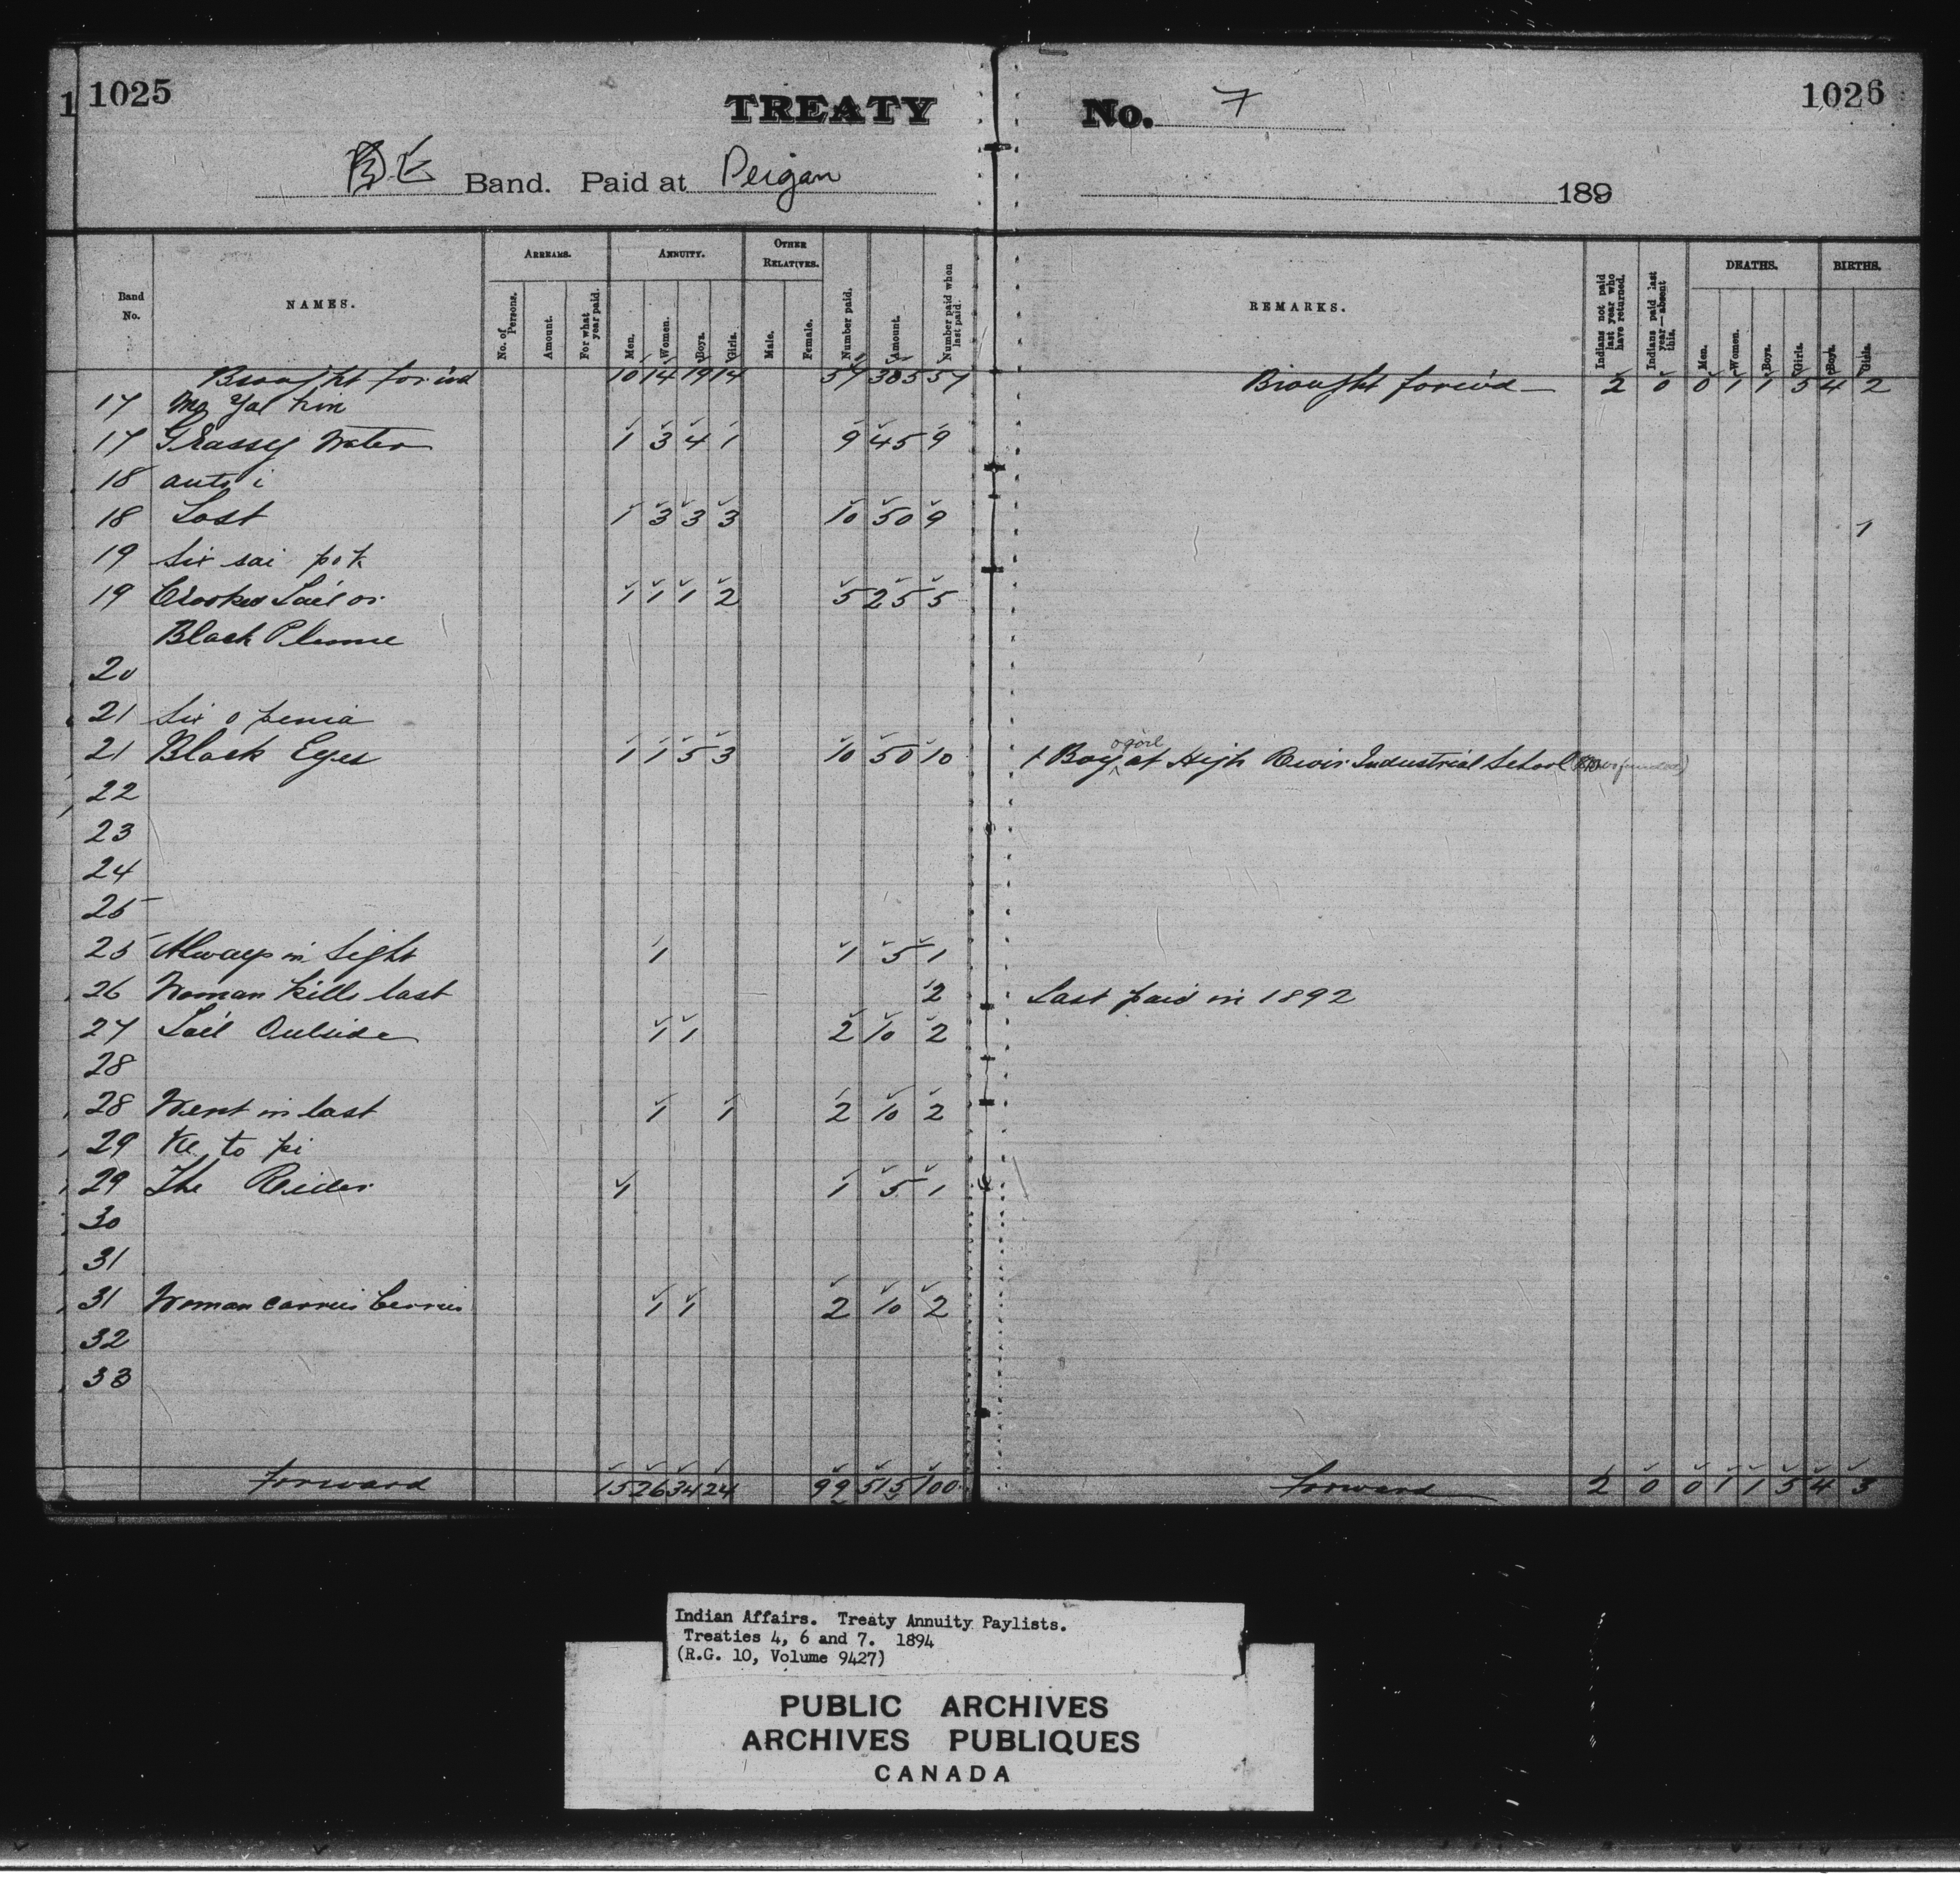 1 1025
TREATY No. 7
1026
E Band. Paid at Peigan 189
Band No. NAMES. ARREARS. No. of Persons. Amount. For what year paid. ANNUITY. Men. Women. Boys. Girls. OTHER RELATIVES. Male. Female. Number paid. Amount. Number paid when last paid. REMARKS. Indians not paid last year who have returned. Indians paid last year—absent this. DEATHS. Men. Women. Boys. Girls. BIRTHS. Boys. Girls.
Brought forw'd 10 14 19 14 57 305 57 Brought forw'd 2 0 0 1 1 5 4 2
17
17 Grassy Water 1 3 4 1 9 45 9
18
18 Lost 1 3 3 3 10 50 9 1
19 Six sai pok
19 Crooked Tail or 1 1 1 2 5 25 5
Black Plume
20
21
21 Black Eyes 1 1 5 3 10 50 10 1 Boy & girl at High River Industrial School
22
23
24
25
25 Always in Sight 1 1 5 1
26 Woman kills last 2 Last paid in 1892
27 Tail Outside 1 1 2 10 2
28
28 Went in last 1 1 2 10 2
29 Ke to pi
29 The Rider 1 1 5 1
30
31
31 Woman carries berries 1 1 2 10 2
32
33
Forward 15 26 34 24 99 515 100 Forward 2 0 0 1 1 5 4 3
Indian Affairs. Treaty Annuity Paylists.
Treaties 4, 6 and 7. 1894
(R.G. 10, Volume 9427)
PUBLIC ARCHIVES
ARCHIVES PUBLIQUES
CANADA